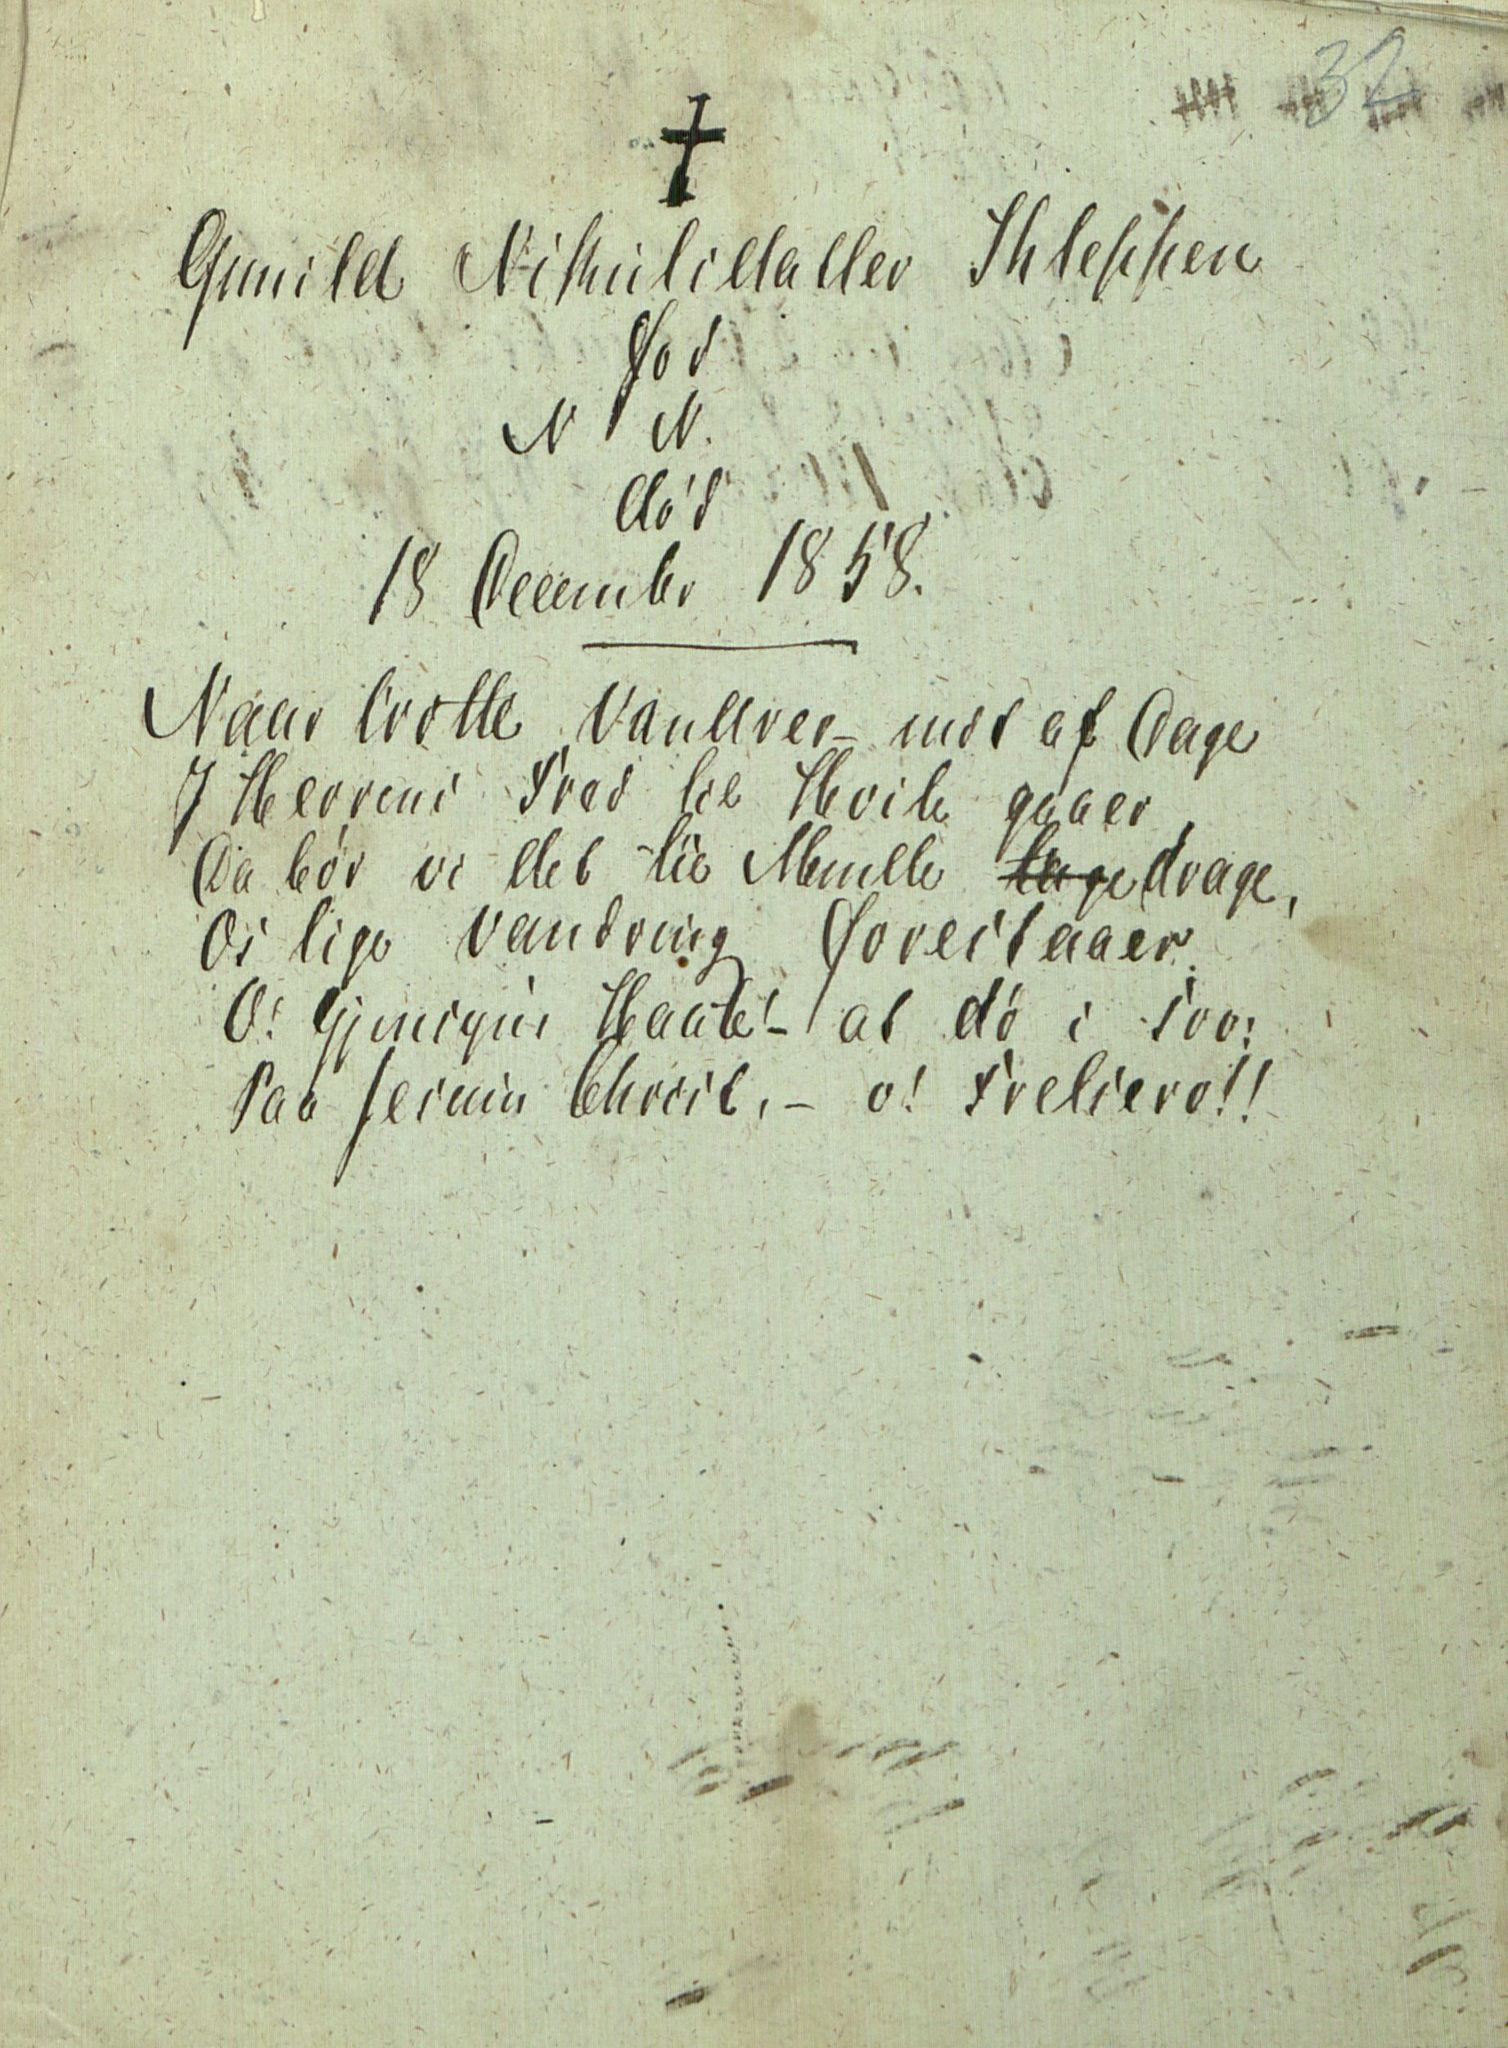 32
Gunild Nikulsdatter Skleppen
Fød
N N.
død
18 December 1858.
Naar trætte Vandrer mæt af Dage
I Herrens Fred til Hvile gaaer
Da bør vi det til Minde tage drage,
Os lige Vandring Forestaaer.
O! Gjensyns Haab! – at dø i Troe:
Paa Jesum Christ, – o! Frelsero!!